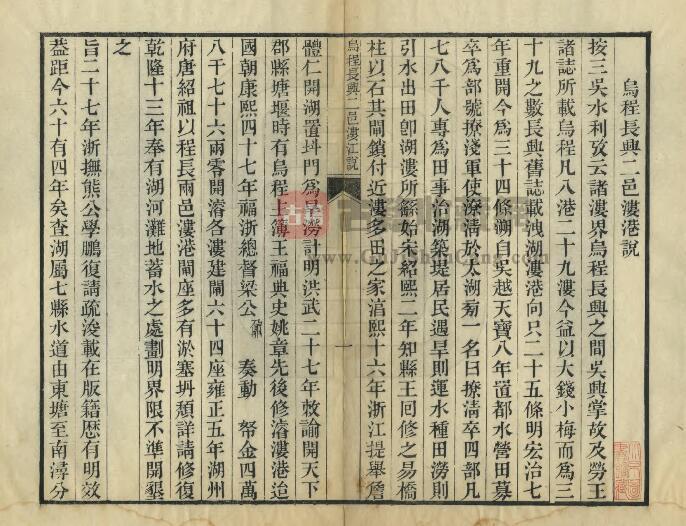 烏程長興二邑漊港說
按三吳水利攷云諸漊界烏程長興之間吳興掌故及勞王
諸誌所載烏程凡八港二十九漊今益以大錢小梅而爲三
十九之數長興舊誌載洩湖漊港向只二十五條明宏治七
年重開今爲三十四條溯自吳越天寶八年置都水營田募
卒爲部號撩淺軍使潦淸於太湖菊一名曰撩淸卒四部凡
七八千人專爲田事治湖築堤居民遇旱則運水種田澇則
引水出田卽湖漊所繇始宋紹熙二年知縣王回修之易橋
柱以石其閘鎖付近漊多田之家湻熙十六年浙江提舉詹
烏程長興二邑漊江說
一
體仁開湖置抖門爲旱澇計明洪武二十七年敕諭開天下
郡縣塘堰時有烏程主簿王福典史姚章先後修濬漊港迨
國朝康熙四十七年福浙總督梁公鼐 奏動 帑金四萬
八千七十六兩零開濬各漊建閘六十四座雍正五年湖州
府唐紹祖以程長兩邑漊港閘座多有淤塞坍頹詳請修復
乾隆十三年奉有湖河灘地蓄水之處劃明界限不準開墾
之
旨二十七年浙撫熊公學鵬復請疏浚載在版籍歴有明效
葢距今六十有四年矣查湖屬七縣水道由東塘至南潯分
www.GuJiShuCang.com